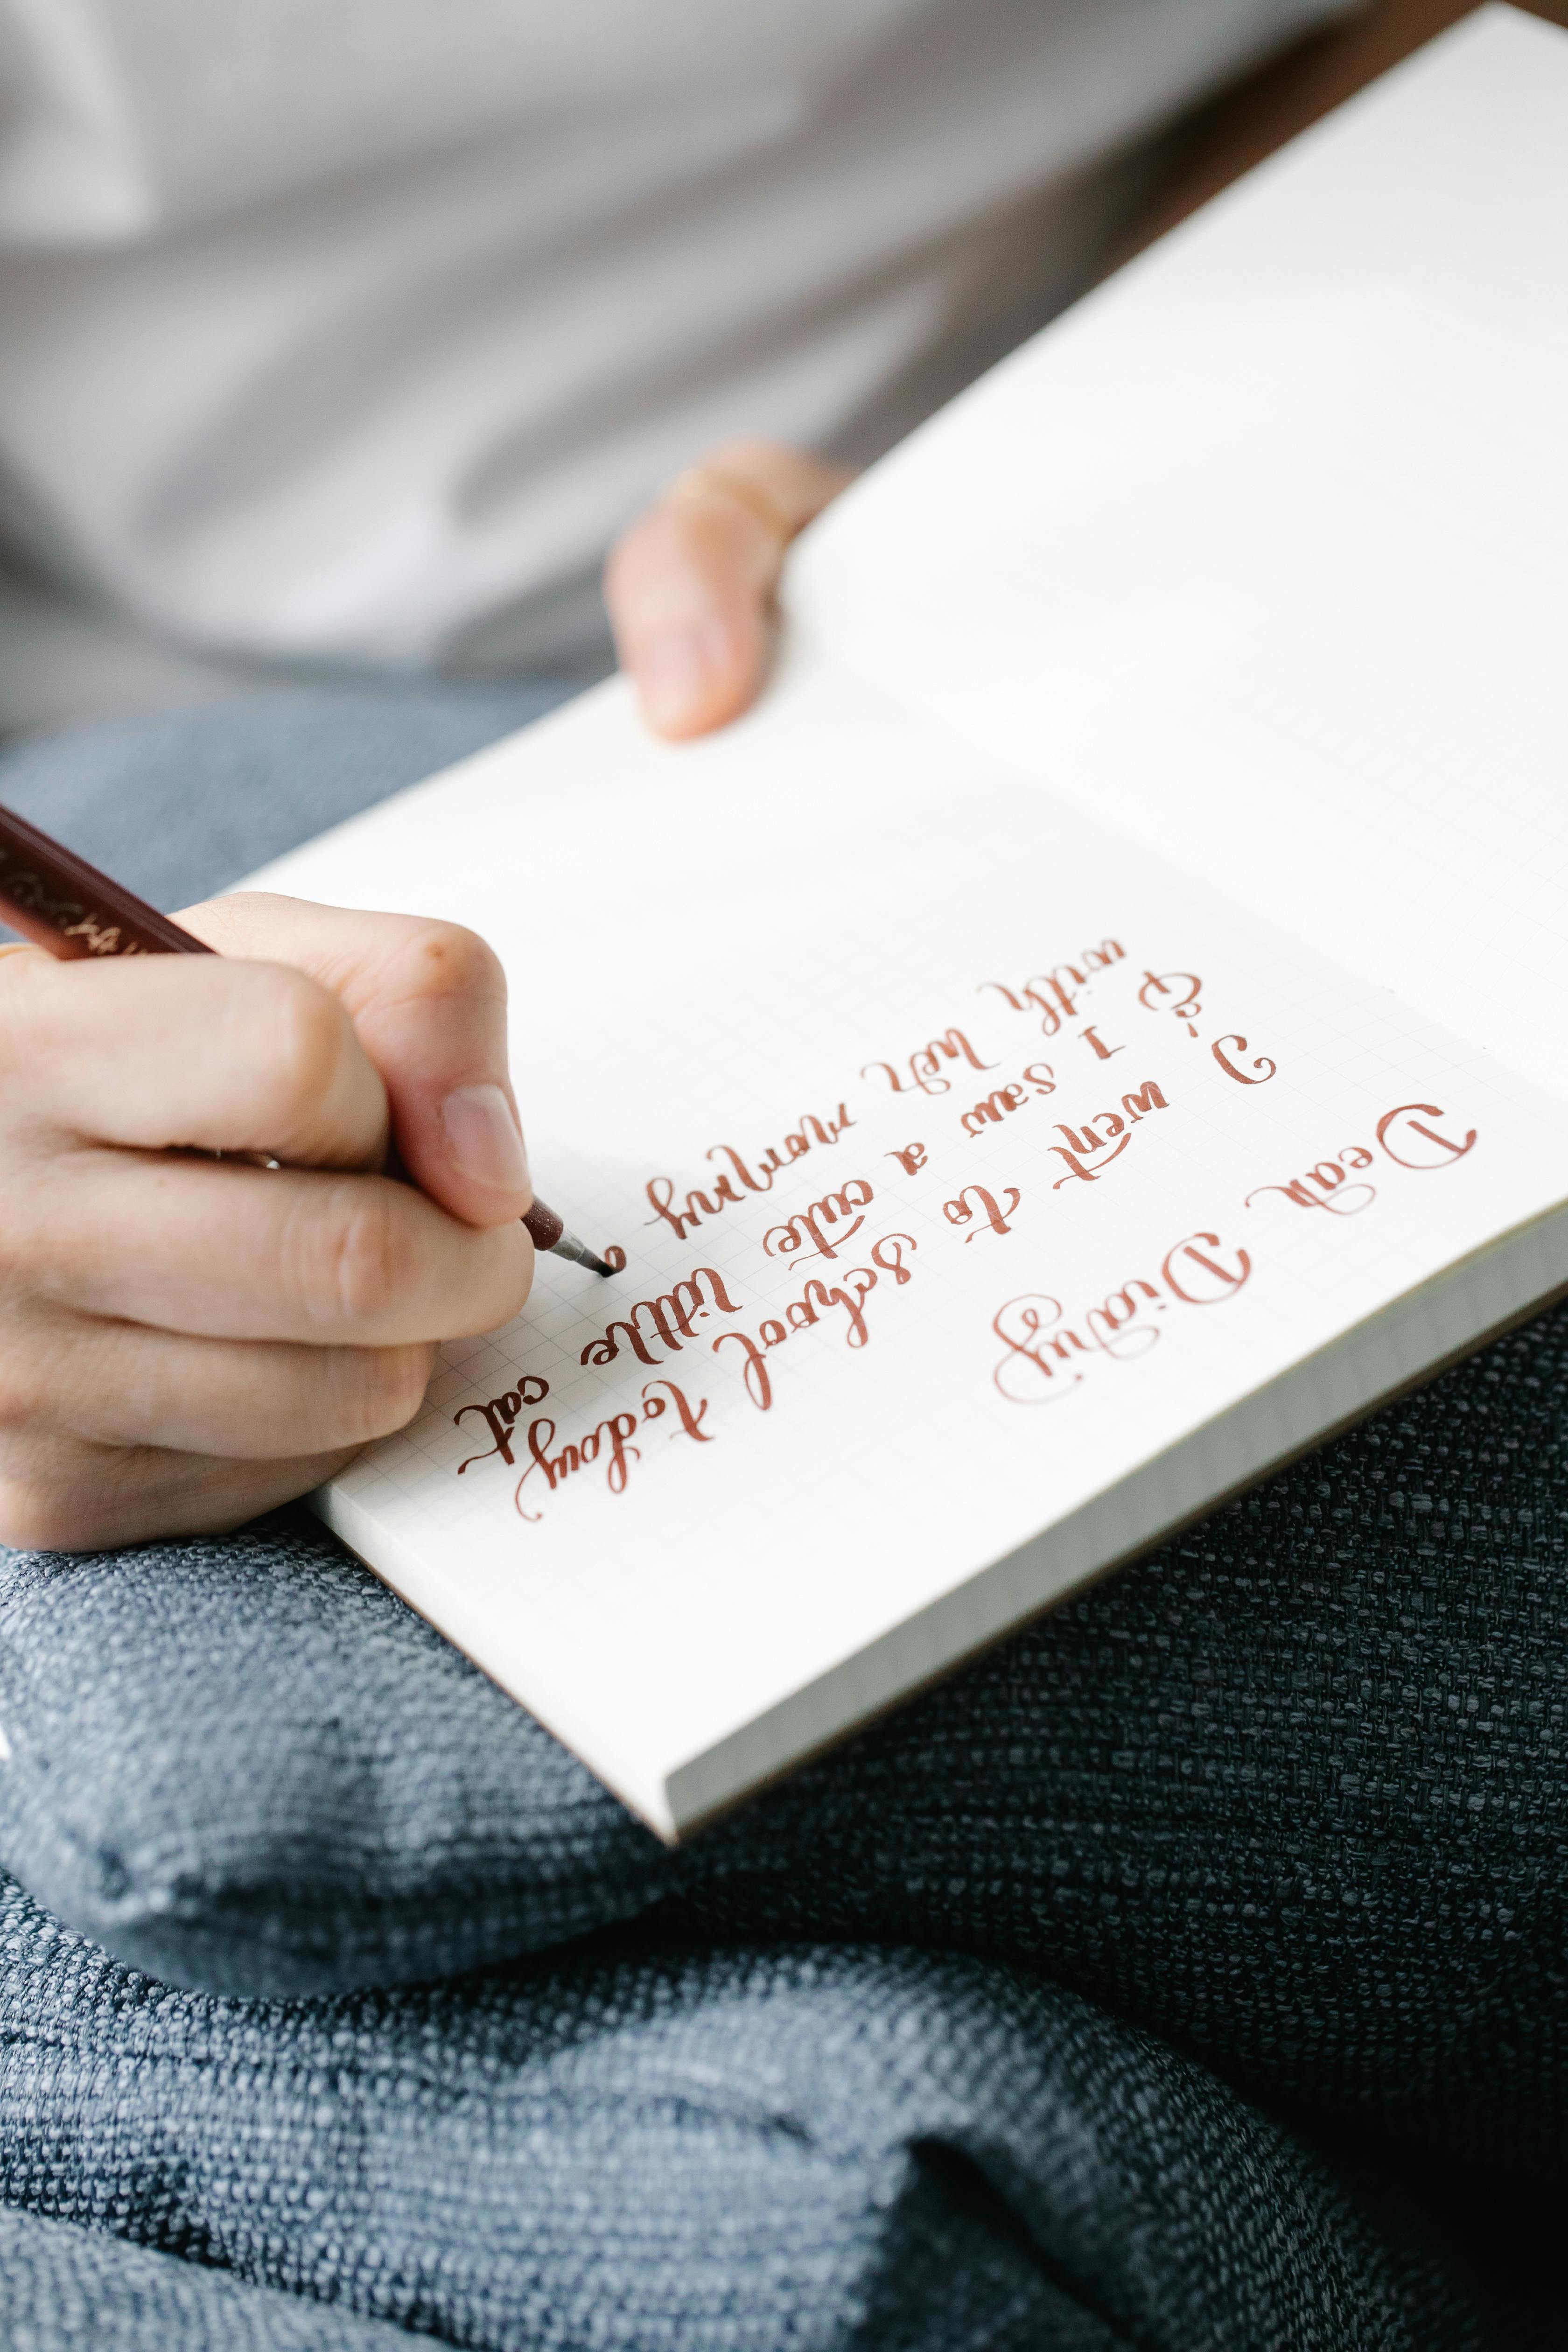 Dear Diary
I went to school today
& I saw a cute little cat
with her mommy